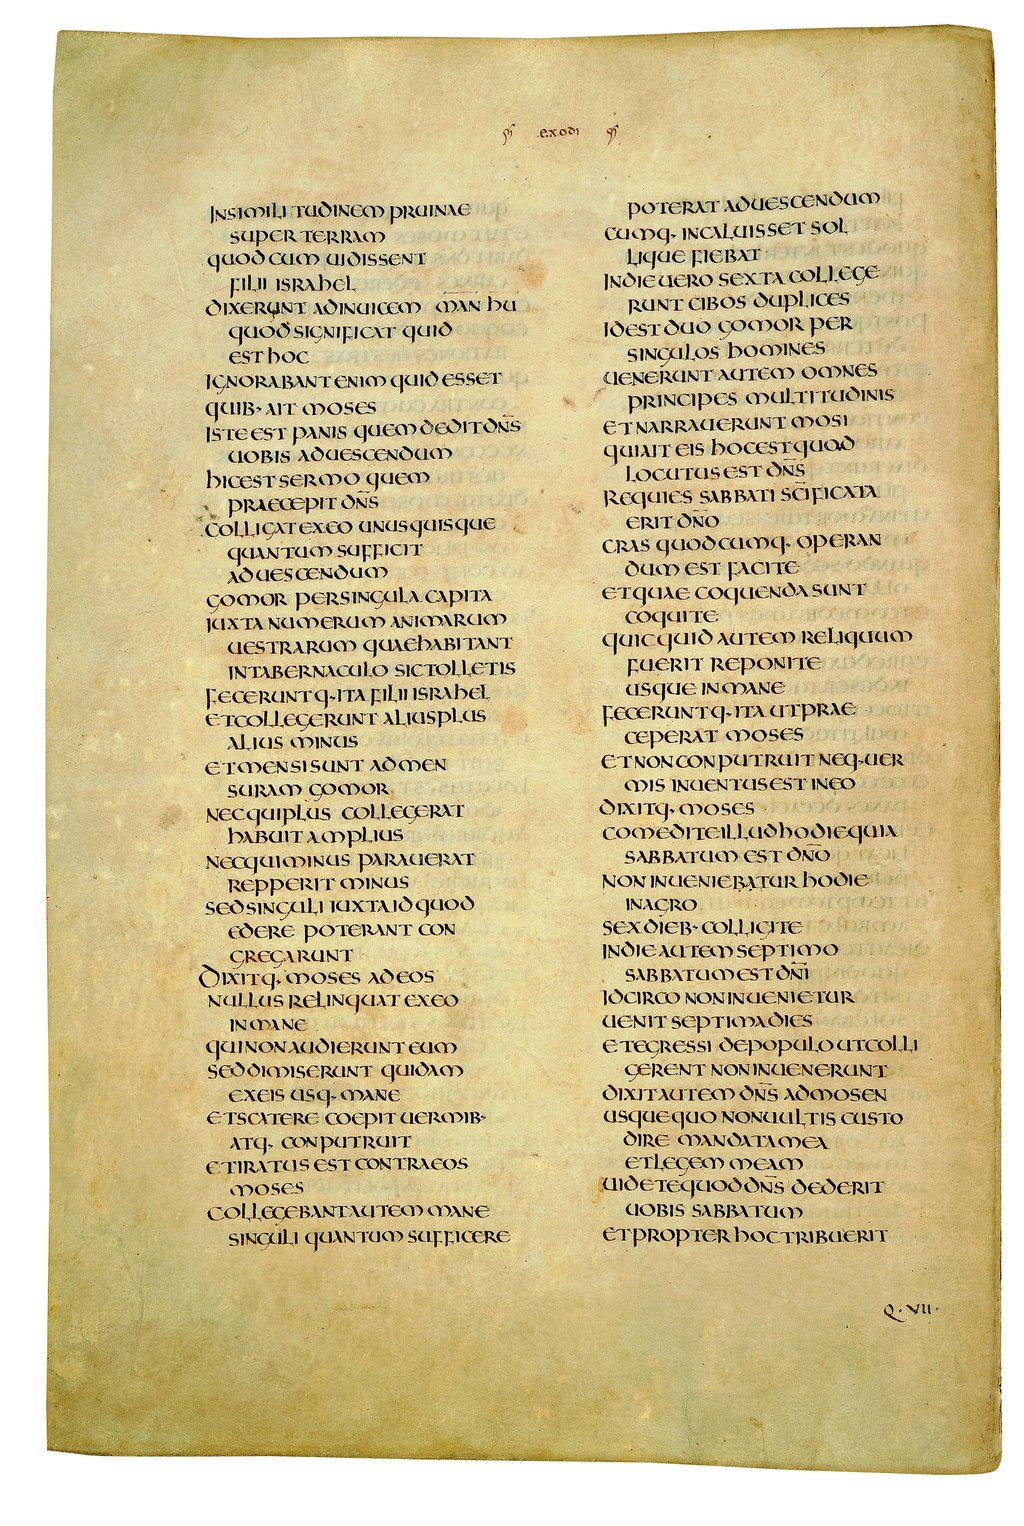 EXODI
IN SIMILITUDINEM PRUINAE
SUPER TERRAM
QUOD CUM UIDISSENT
FILII ISRAHEL
DIXERUNT AD INUICEM MAN HU
QUOD SIGNIFICAT QUID
EST HOC
IGNORABANT ENIM QUID ESSET
QUIB· AIT MOSES
ISTE EST PANIS QUEM DEDIT DN̄S
UOBIS AD UESCENDUM
HIC EST SERMO QUEM
PRAECEPIT DN̄S
COLLIGAT EX EO UNUSQUISQUE
QUANTUM SUFFICIT
AD UESCENDUM
GOMOR PER SINGULA CAPITA
IUXTA NUMERUM ANIMARUM
UESTRARUM QUAE HABITANT
IN TABERNACULO SIC TOLLETIS
FECERUNTQ· ITA FILII ISRAHEL
ET COLLEGERUNT ALIUS PLUS
ALIUS MINUS
ET MENSI SUNT AD MEN
SURAM GOMOR
NEC QUI PLUS COLLEGERAT
HABUIT AMPLIUS
NEC QUI MINUS PARAUERAT
REPPERIT MINUS
SED SINGULI IUXTA ID QUOD
EDERE POTERANT CON
GREGARUNT
DIXITQ· MOSES AD EOS
NULLUS RELINQUAT EX EO
IN MANE
QUI NON AUDIERUNT EUM
SED DIMISERUNT QUIDAM
EX EIS USQ· MANE
ET SCATERE COEPIT UERMIB·
ATQ· CONPUTRUIT
ET IRATUS EST CONTRA EOS
MOSES
COLLEGEBANT AUTEM MANE
SINGULI QUANTUM SUFFICERE
POTERAT AD UESCENDUM
CUMQ· INCALUISSET SOL
LIQUEFIEBAT
IN DIE UERO SEXTA COLLEGE
RUNT CIBOS DUPLICES
ID EST DUO GOMOR PER
SINGULOS HOMINES
UENERUNT AUTEM OMNES
PRINCIPES MULTITUDINIS
ET NARRAUERUNT MOSI
QUI AIT EIS HOC EST QUOD
LOCUTUS EST DN̄S
REQUIES SABBATI SC̄IFICATA
ERIT DN̄O
CRAS QUODCUMQ· OPERAN
DUM EST FACITE
ET QUAE COQUENDA SUNT
COQUITE
QUICQUID AUTEM RELIQUUM
FUERIT REPONITE
USQUE IN MANE
FECERUNTQ· ITA UT PRAE
CEPERAT MOSES
ET NON CONPUTRUIT NEQ· UER
MIS INUENTUS EST IN EO
DIXITQ· MOSES
COMEDITE ILLUD HODIE QUIA
SABBATUM EST DN̄O
NON INUENIEBATUR HODIE
IN AGRO
SEX DIEB· COLLIGITE
IN DIE AUTEM SEPTIMO
SABBATUM EST DN̄I
IDCIRCO NON INUENIETUR
UENIT SEPTIMA DIES
ET EGRESSI DE POPULO UT COLLI
GERENT NON INUENERUNT
DIXIT AUTEM DN̄S AD MOSEN
USQUEQUO NON UULTIS CUSTO
DIRE MANDATA MEA
ET LEGEM MEAM
UIDETE QUOD DN̄S DEDERIT
UOBIS SABBATUM
ET PROPTER HOC TRIBUERIT
Q·VII·